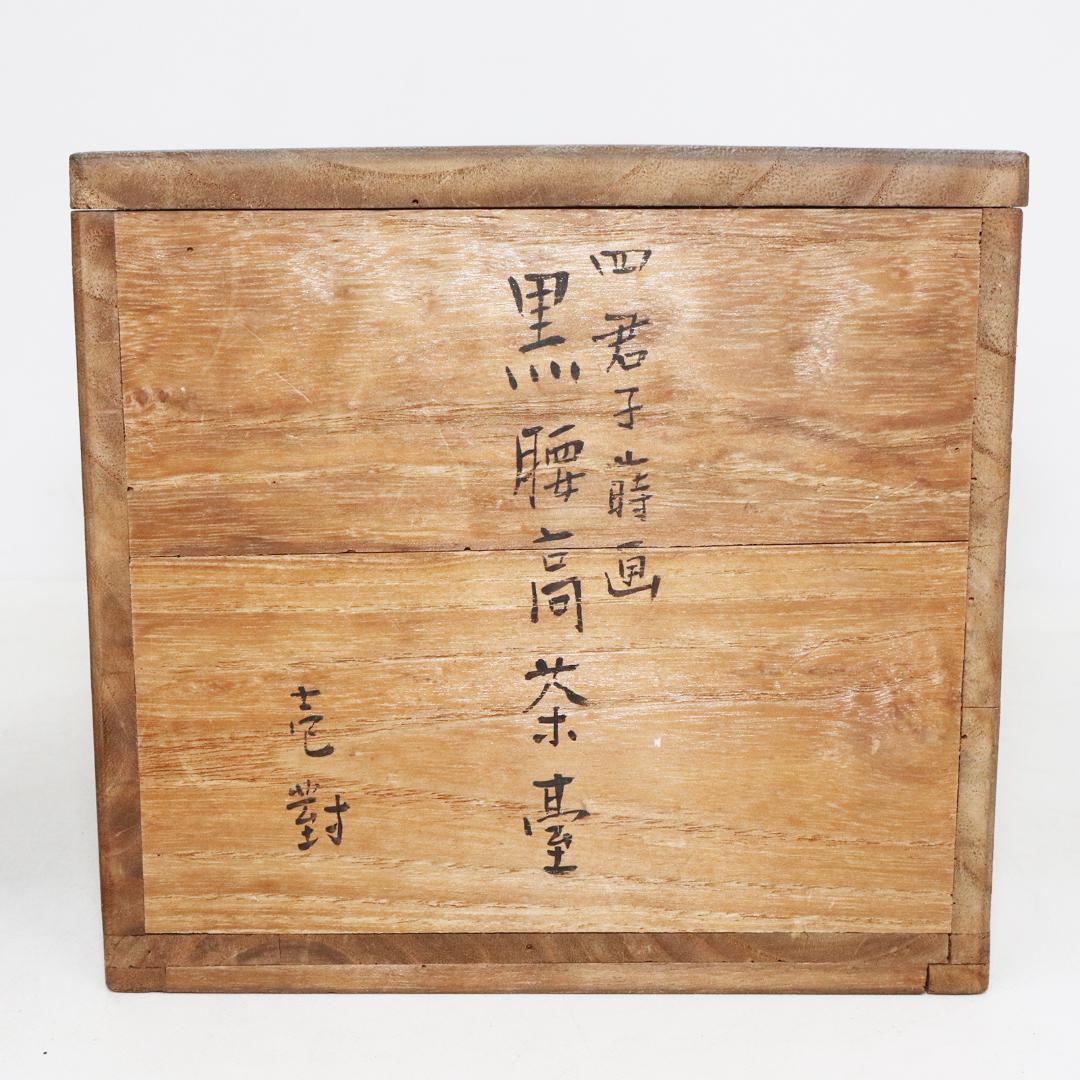 四君子蒔画
黒腰高茶臺
壱對